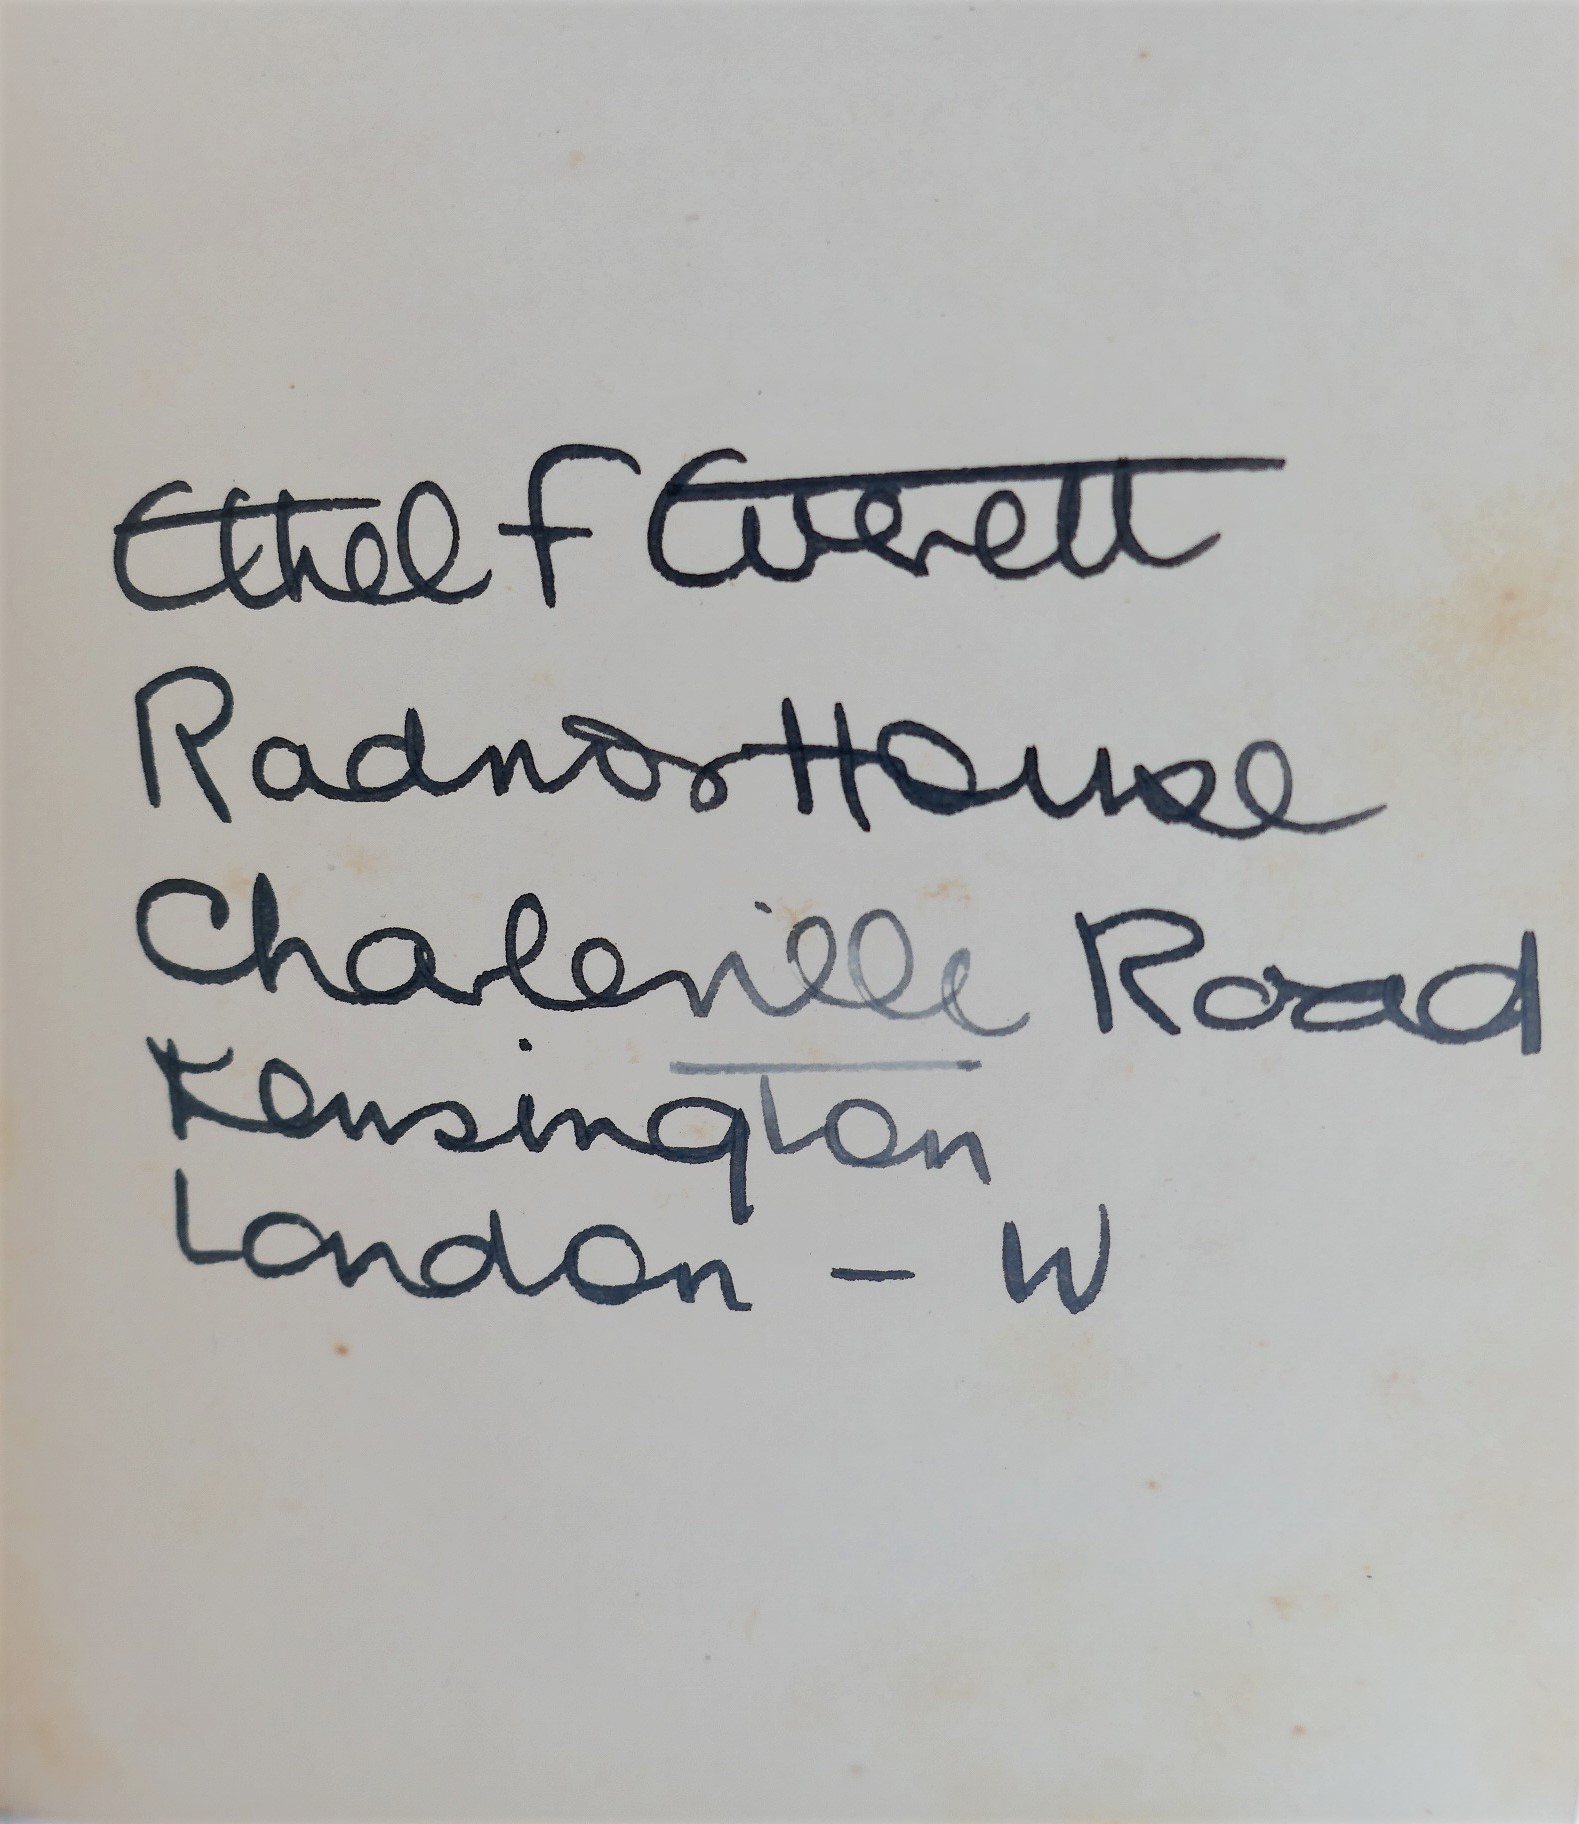 Ethel F Everett
Radnor House
Charleville Road
Kensington
London - W